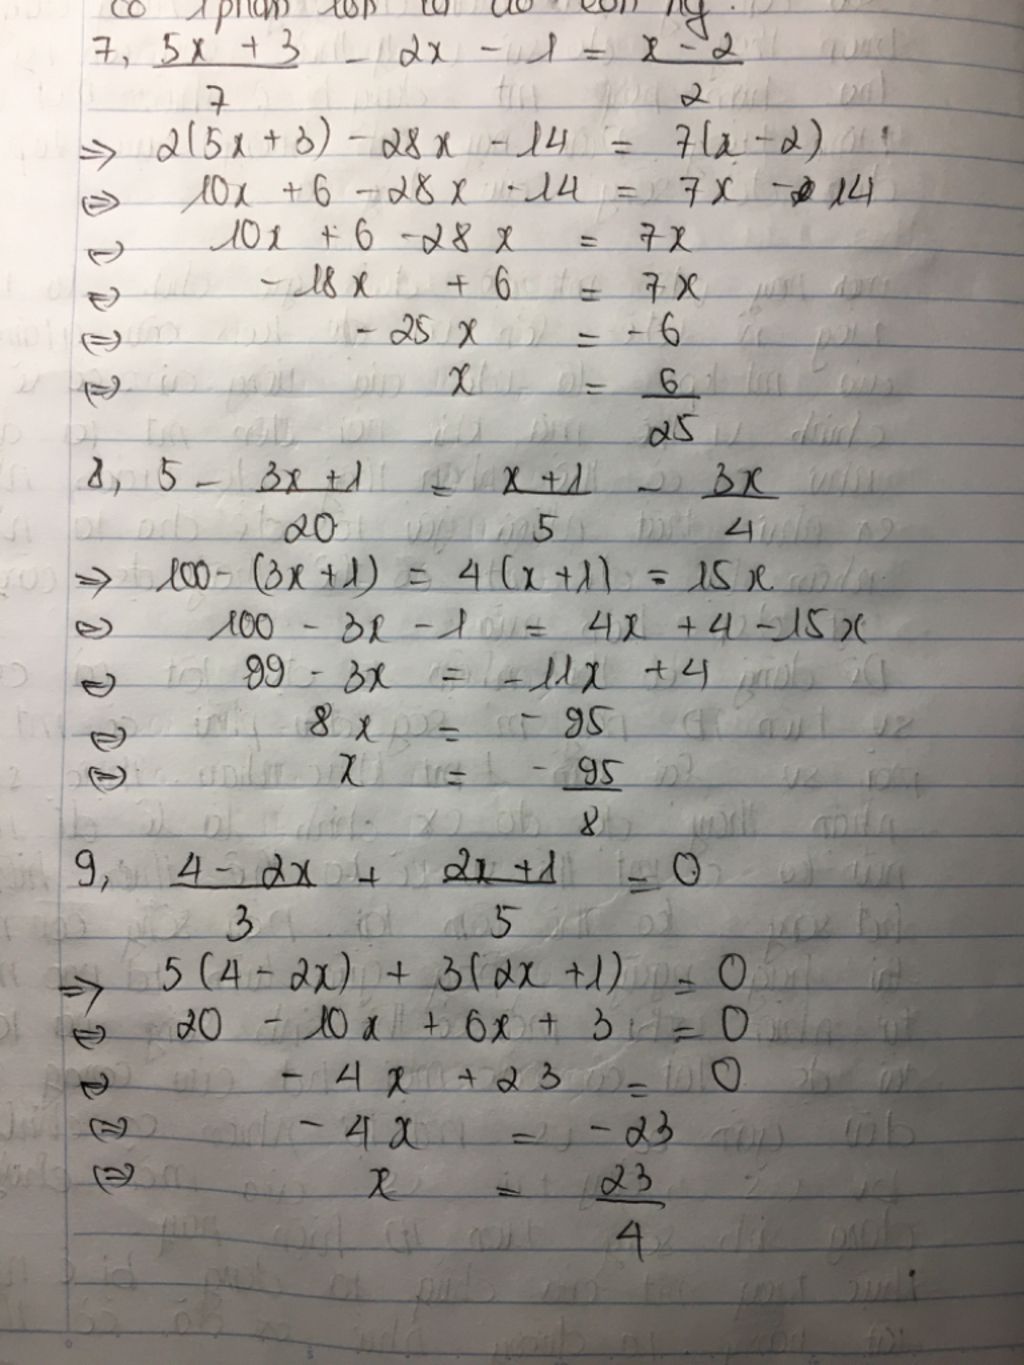 7, \frac{5x + 3}{7} - 2x - 1 = \frac{x - 2}{2}
=> 2(5x + 3) - 28x - 14 = 7(x - 2)
<=> 10x + 6 - 28x - 14 = 7x - 14
<=> 10x + 6 - 28x = 7x
<=> - 18x + 6 = 7x
<=> - 25x = - 6
<=> x = \frac{6}{25}
8, 5 - \frac{3x + 1}{20} = \frac{x + 1}{5} - \frac{3x}{4}
=> 100 - (3x + 1) = 4(x + 1) = 15x
<=> 100 - 3x - 1 = 4x + 4 - 15x
<=> 99 - 3x = - 11x + 4
<=> 8x = - 95
<=> x = - \frac{95}{8}
9, \frac{4 - 2x}{3} + \frac{2x + 1}{5} = 0
=> 5(4 - 2x) + 3(2x + 1) = 0
<=> 20 - 10x + 6x + 3 = 0
<=> - 4x + 23 = 0
<=> - 4x = - 23
<=> x = \frac{23}{4}